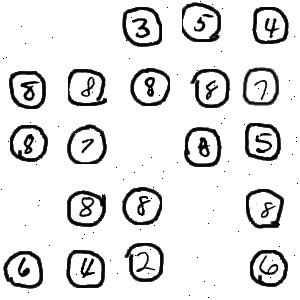 3 5 4
8 8 8 8 7
8 7 8 5
8 8 8
6 4 2 6